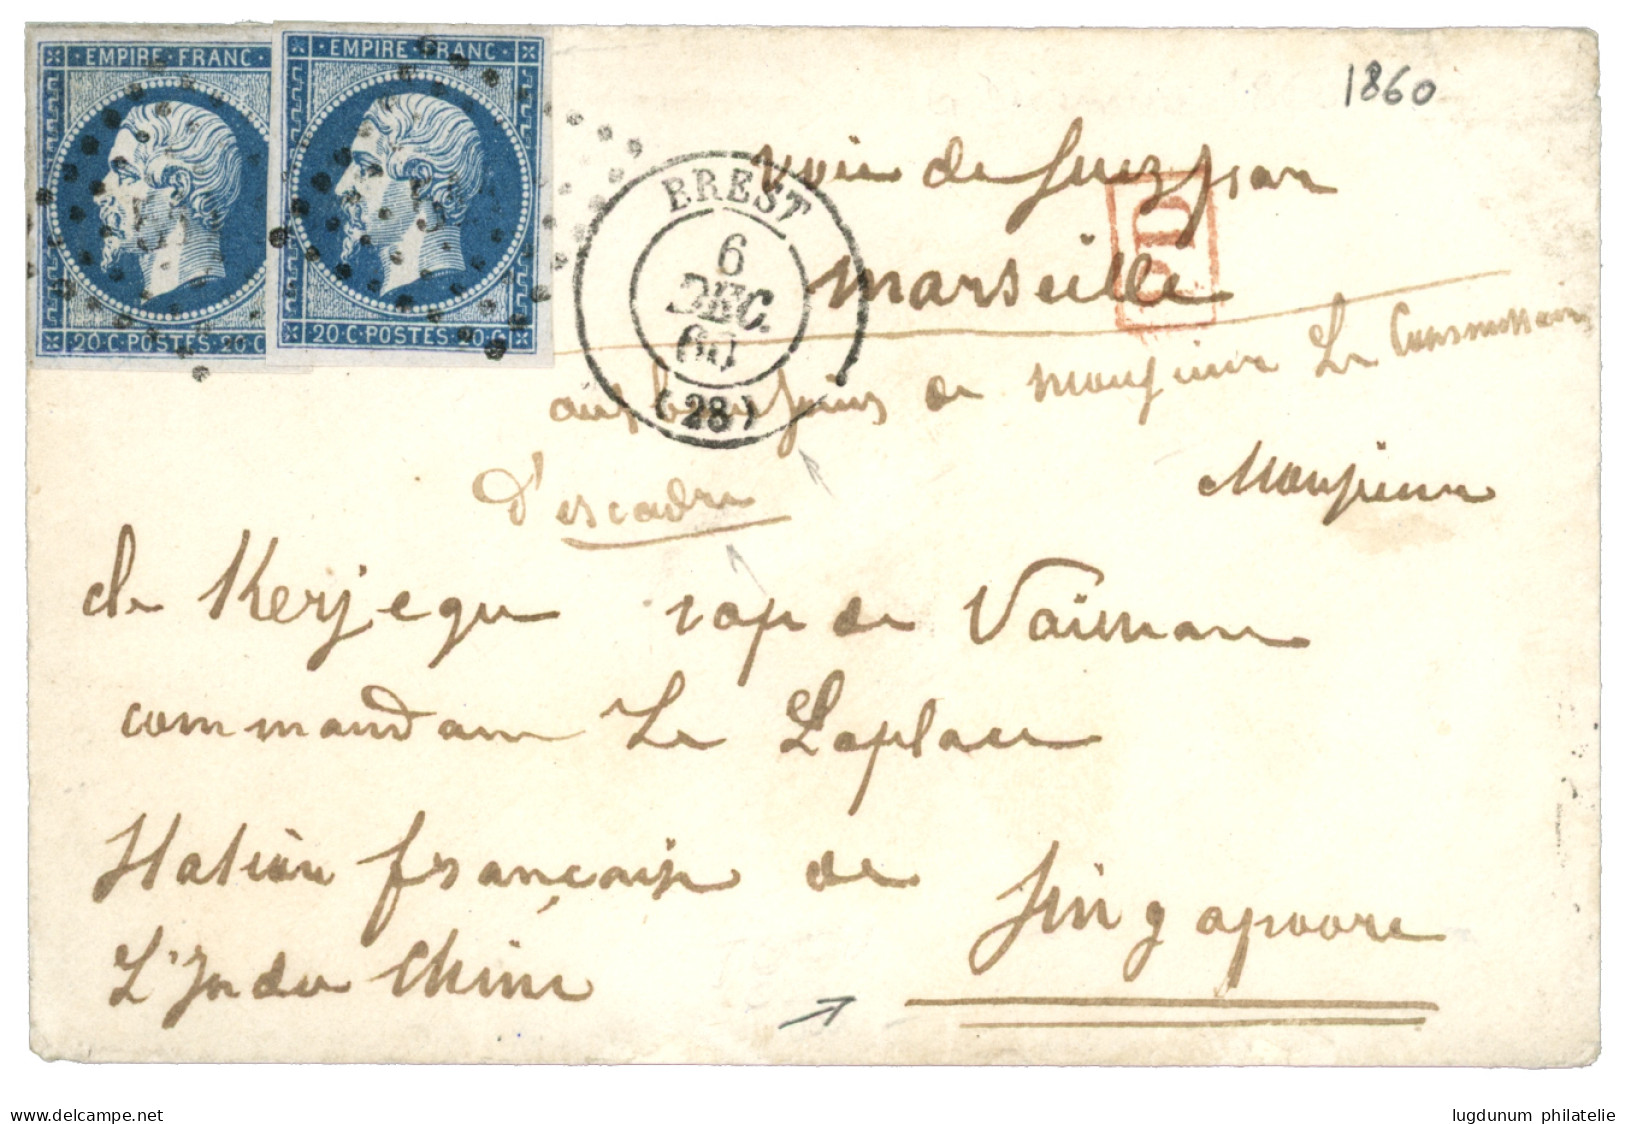 EMPIRE·FRANC·
EMPIRE·FRANC·
20·C·POSTES·20·C
20·C·POSTES·20·C
1860
voie de Suez par
marseille
BREST
6
DEC.
60
(28)
PD
aux bons soins de Monsieur Le
D'escadre
Monsieur
de Kerjegu cap de Vaisseau
commandant Le Laplace
Station française de Singapoore
L'Indo Chine
delcampe.net
lugdunum philatelie